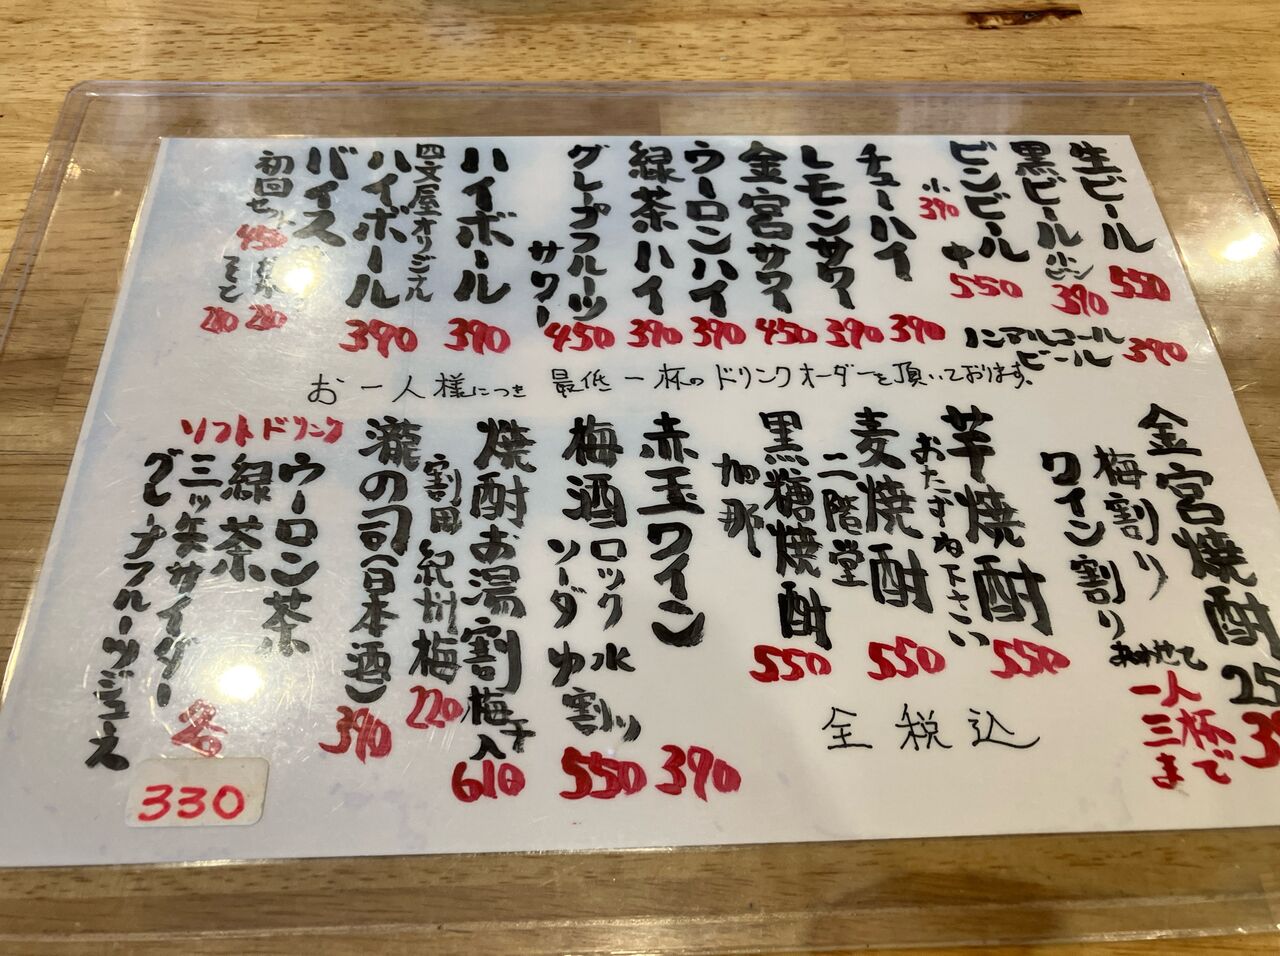 生ビール
550
黒ビール
小ビン
390
ビンビール
小
390
中
550
ノンアルコール
ビール
390
チューハイ
390
レモンサワー
390
金宮サワー
450
ウーロンハイ
390
緑茶ハイ
390
グレープフルーツ
サワー
450
ハイボール
390
四文屋オリジナル
ハイボール
390
バイス
初回セット
450
280
280
お一人様につき 最低一杯のドリンクオーダーを頂いております。
金宮焼酎
梅割り
ワイン割り
あわせて
一人
三杯
まで
芋焼酎
おたずね下さい
550
麦焼酎
二階堂
550
黒糖焼酎
加那
550
赤玉ワイン
390
梅酒
ロック
水
ソーダ
ゆ
割り
550
焼酎お湯割
梅干入
610
割用 紀州梅
220
瀧の司(日本酒)
390
ソフトドリンク
ウーロン茶
緑茶
三ッ矢サイダー
グレープフルーツジュース
各
330
全税込